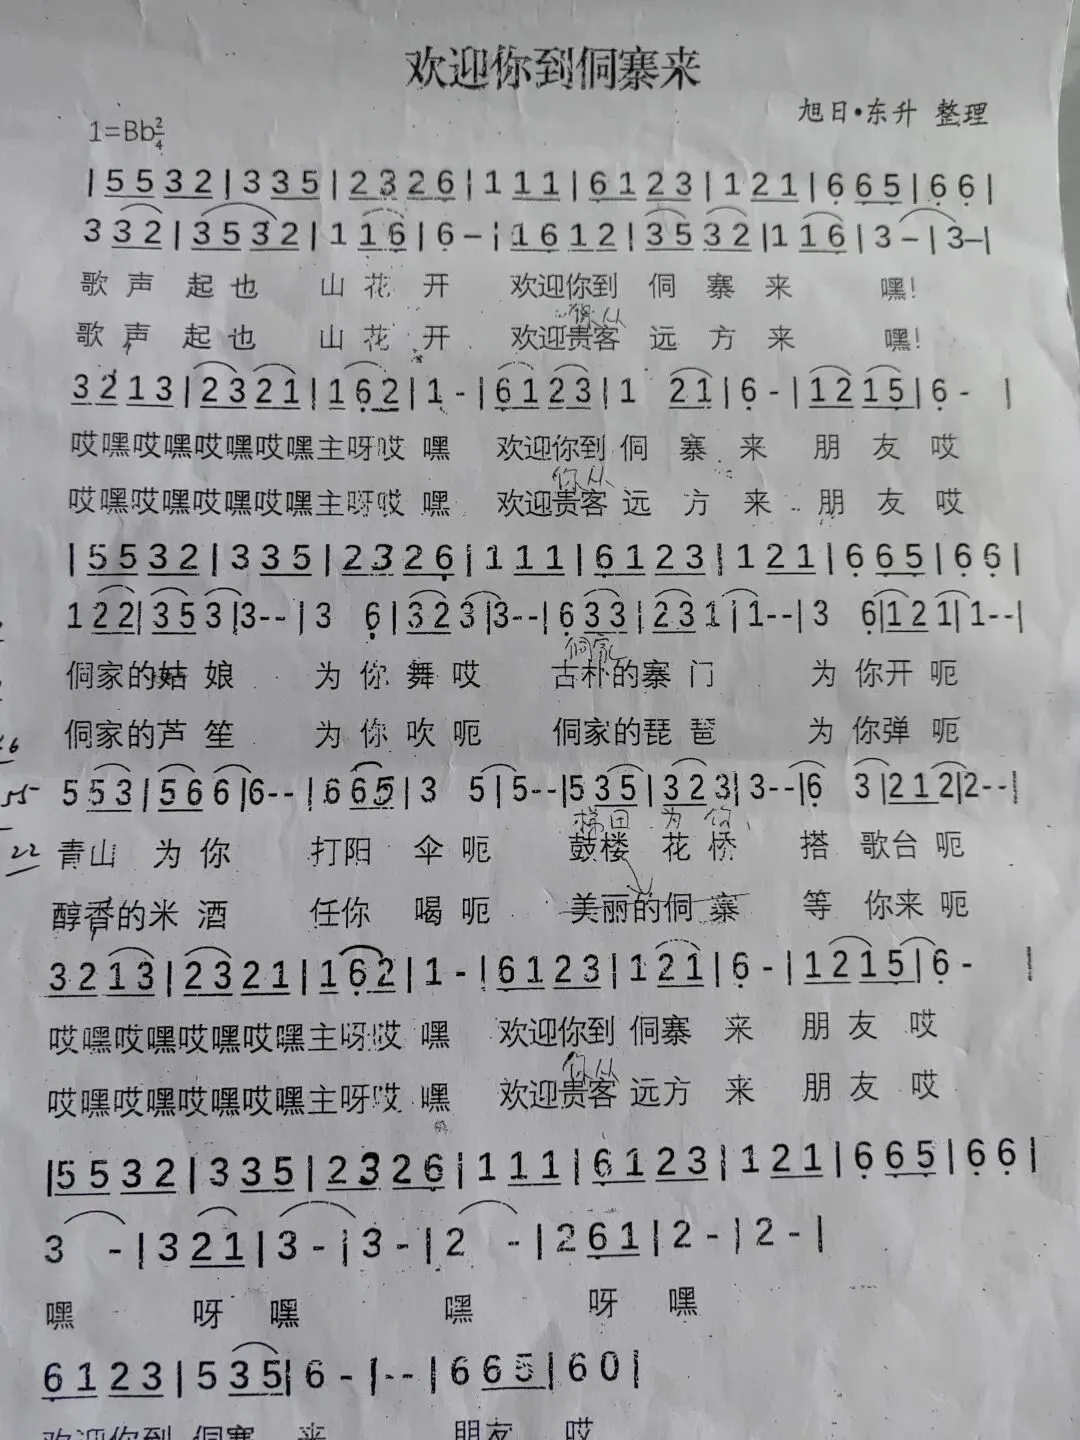 欢迎你到侗寨来
旭日·东升 整理
1=Bb 2/4
|5532|335|2326|111|6123|121|665|66|
3 32|3532|1 16|6–|1612|3532|1 16|3–|3–|
歌声 起也 山花 开 欢迎你到 侗寨来 嘿!
你从
歌声 起也 山花 开 欢迎贵客 远方来 嘿!
3213|2321|162|1-|6123|1 21|6-|1215|6- |
哎嘿哎嘿哎嘿哎嘿主呀哎 嘿 欢迎你到 侗寨来 朋友哎
你从
哎嘿哎嘿哎嘿哎嘿主呀哎 嘿 欢迎贵客 远方来 朋友哎
|5532|335|2326|111|6123|121|665|66|
1 22|35 3|3--|3 6|32 3|3--|6 33|23 1|1--|3 6|12 1|1--|
侗家
侗家的姑娘 为你舞哎 古朴的寨门 为你开呃
侗家的芦笙 为你吹呃 侗家的琵琶 为你弹呃
55
5 53|56 6|6--|6 65|3 5|5--|5 35|32 3|3--|6 3|21 2|2--|
为你
22
青山 为你 打阳 伞呃 鼓楼 花桥 搭 歌台呃
醇香的米酒 任你 喝呃 美丽的侗寨 等 你来呃
3213|2321|162|1-|6123|1 21|6-|1215|6- |
哎嘿哎嘿哎嘿哎嘿主呀哎 嘿 欢迎你到 侗寨 来 朋友 哎
你从
哎嘿哎嘿哎嘿哎嘿主呀哎 嘿 欢迎贵客 远方 来 朋友 哎
|5532|335|2326|111|6123|121|665|66|
3 -|3 21|3-|3-|2 -|2 61|2-|2-|
嘿 呀 嘿 嘿 呀 嘿
6123|5 35|6-|--|6 65|60|
欢迎你到 侗寨 来 朋友 哎